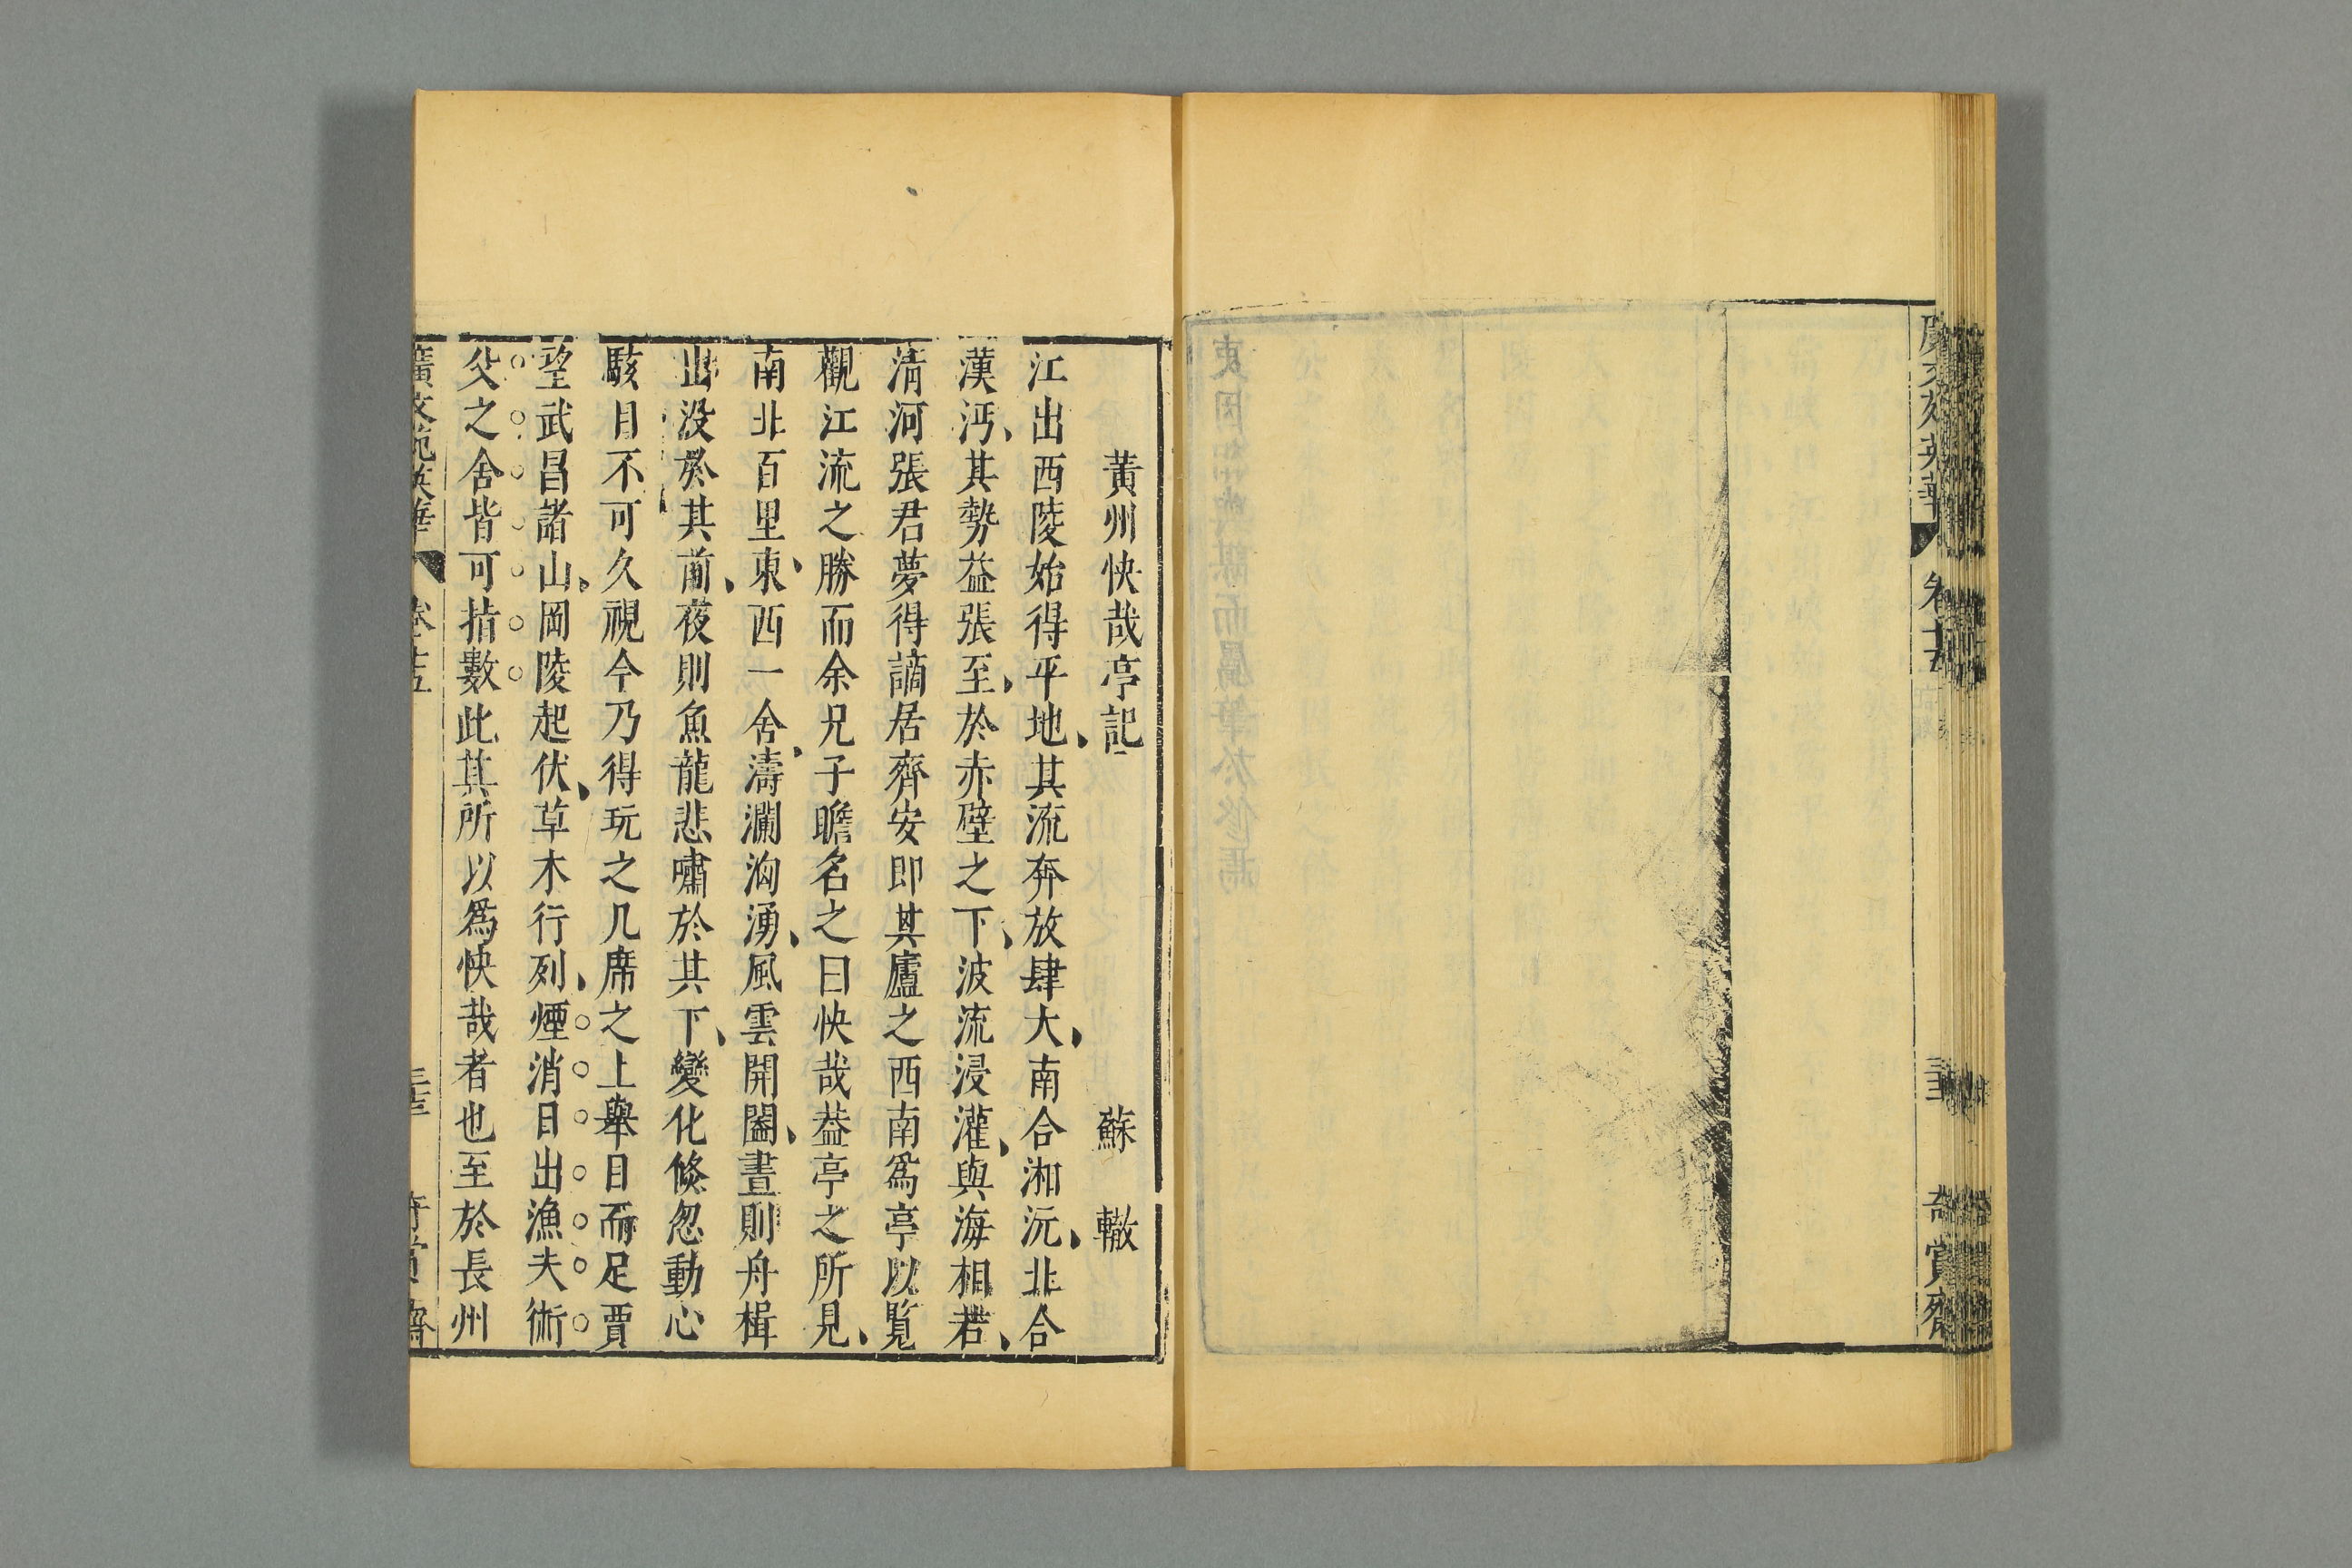 黃州快哉亭記 蘇轍
江出西陵始得平地其流奔放肆大南合湘沅北合
漢沔其勢益張至於赤壁之下波流浸灌與海相若
淸河張君夢得謫居齊安即其廬之西南爲亭以覧
觀江流之勝而余兄子瞻名之曰快哉葢亭之所見
南北百里東西一舍濤瀾洶湧風雲開闔晝則舟楫
出没於其前夜則魚龍悲嘯於其下變化倐忽動心
駭目不可久視今乃得玩之几席之上舉目而足賈
望武昌諸山岡陵起伏草木行列煙消日出漁夫術
父之舍皆可指數此其所以爲快哉者也至於長州
廣文苑英華 卷十五 奇賞齋